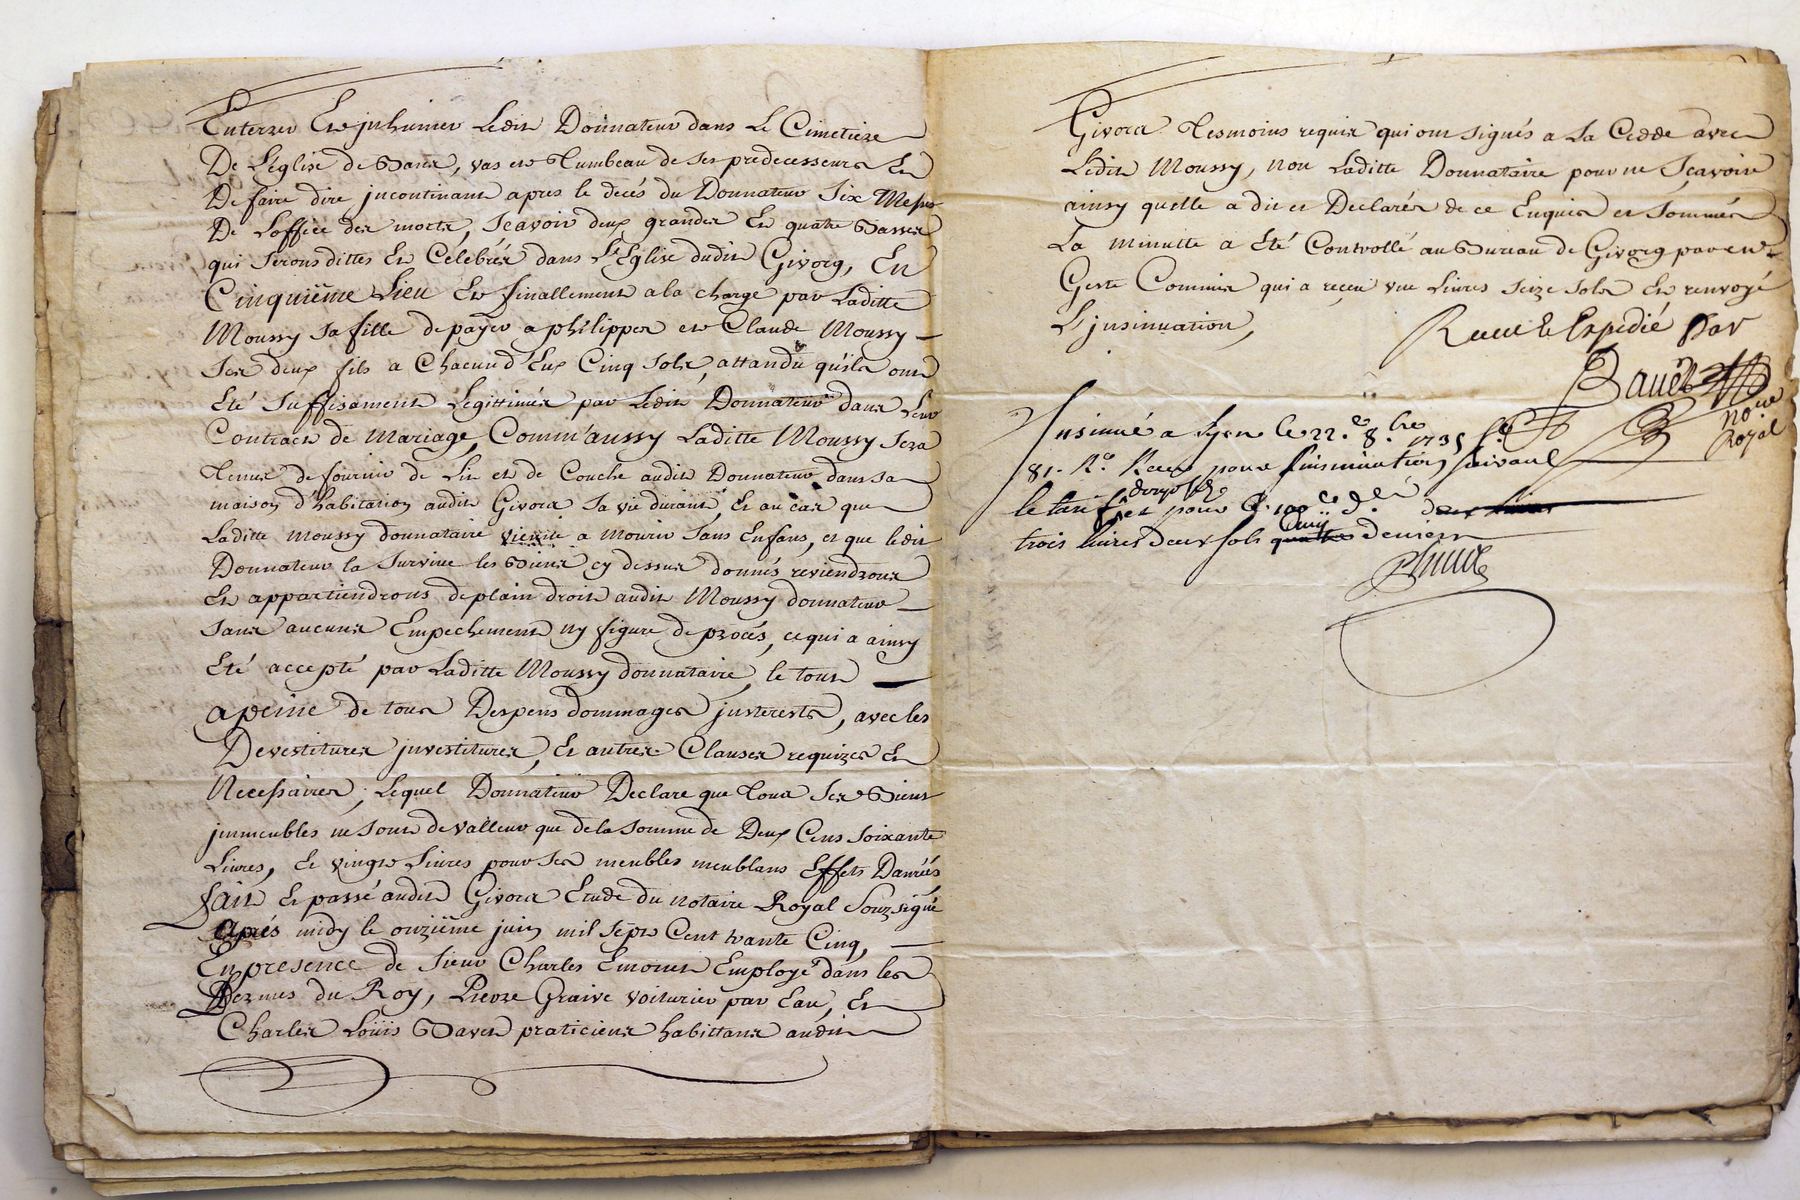 Enterrer Et jnhumer Ledit Donnateur dans Le Cimetiere
De L'églize de Bans, vas et Tumbeau de ses predecesseurs Et
De faire dire jncontinant apres le decés du Donnateur Six Messes
De Loffice des morts, scavoir deux grandes Et quatre Basses
qui seront dittes Et Celebrés dans L'Eglise dudit Givors, En
Cinquiéme Lieu Et finallement a la charge par Laditte
Moussy sa fille de payer a philippes et Claude Moussy
ses deux fils a Chacun d'Eux Cinq sols, attandu quils ont
Eté Suffisament Legittimés par Ledit Donnateur dans Leur
Contract de Mariage, Comm'aussy Laditte Moussy sera
Tenue de fournir de Lit et de Couche audit Donnateur dans sa
maison d'habitation audit Givors sa vie durant, Et au cas que
Laditte Moussy donnataire vienne a Mourir Sans Enfans, et que ledit
Donnateur la Survive les Biens cy dessus donnés reviendront
Et appartiendront de plain droit audit Moussy donnateur
Sans aucuns Empechement ny figure de procés, ce qui a ainsy
Eté accepté par Laditte Moussy donnataire, le tout
a peine de tous Despens dommages jnterests, avec les
Devestitures jnvestitures, Et autres Clauses requizes Et
Necessaires, Lequel Donnateur Declare que Tous Ses Biens
jmmeubles ne sont de valleur que de la somme de Deux Cens soixante
Livres, Et vingt Livres pour ses meubles meublans Effets Danrées
fait Et passé audit Givors Etude du notaire Royal Souzsigné
aprés midy le onziéme juin mil sept Cent trante Cinq,
En presence de Sieur Charles Emonet Employé dans les
fermes du Roy, Pierre Graive voiturier par Eau, Et
Charles Loüis Bavet praticiens habittans audit
Givors Tesmoins requis qui ont signés a La Cedde avec
Ledit Moussy, non Laditte Donnataire pour ne Scavoir
ainsy quelle a dit et Declarés de ce Enquis et Sommés
La minutte a Eté Controllé au Bureau de Givors par
Geste Commis qui a reçeu une Livres seize sols Et renvoyé
L'jnsinuation,
Receu & Expedié Par
Bavet
no.re
Royal
Insinué a Lyon le 22.e 8.bre 1735 f.o
81. R.o Receu pour l'insinuation suivant
le tarif et pour
trois livres deux sols quatre deniers